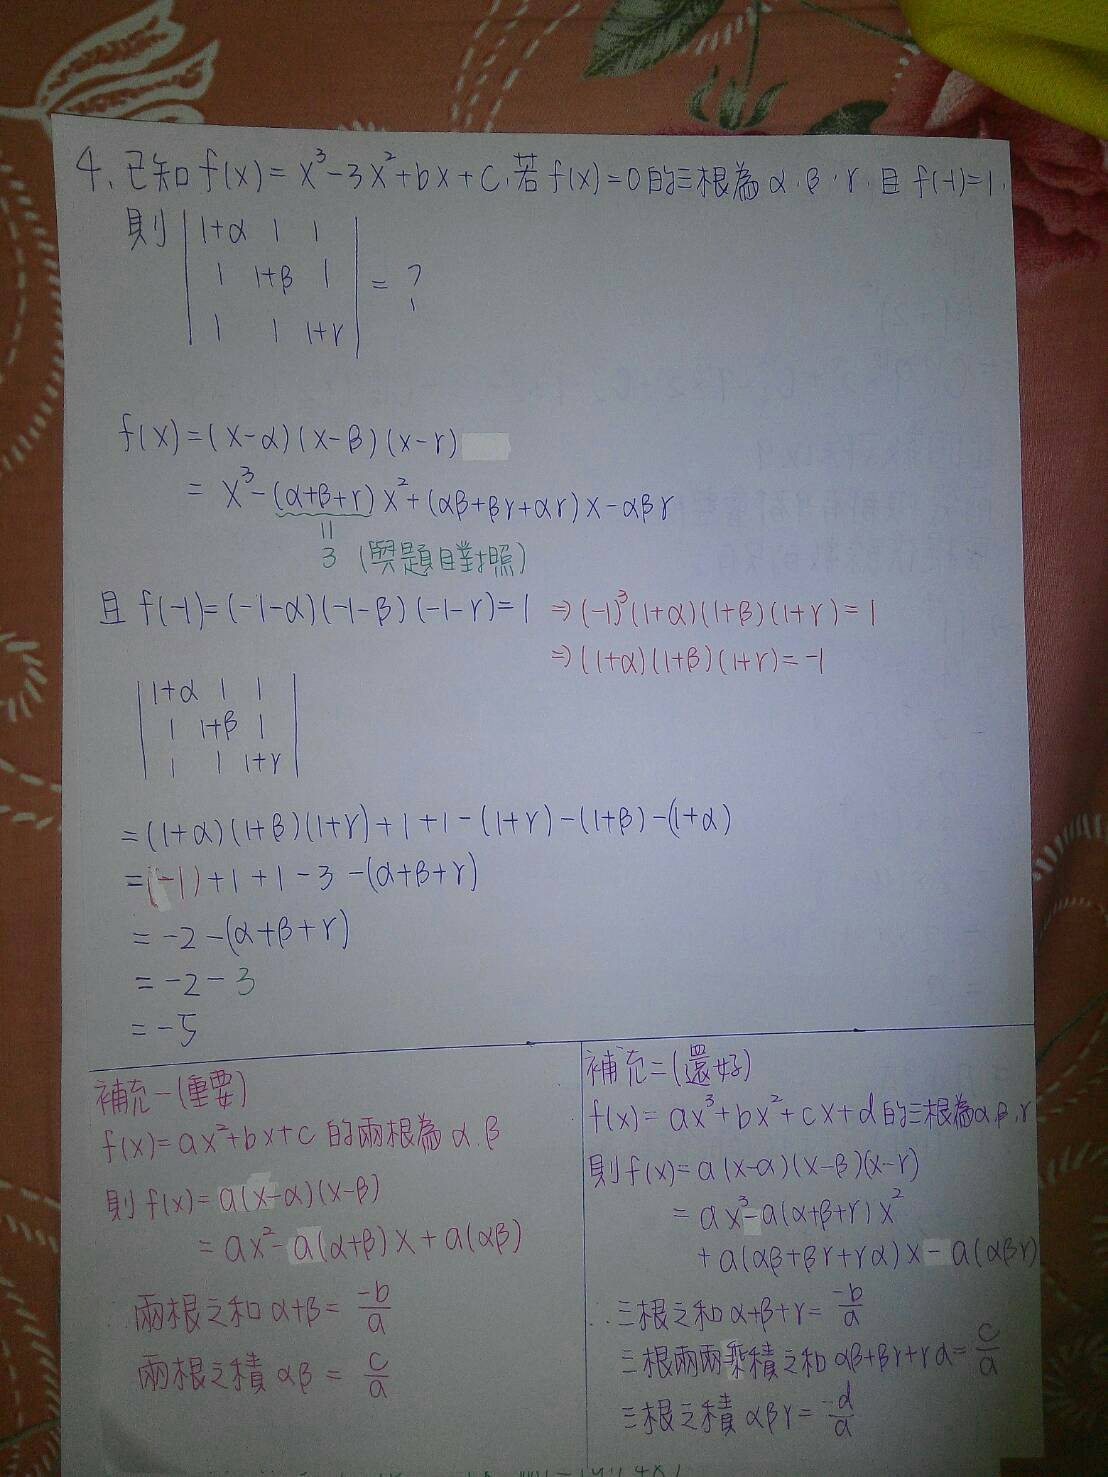 4. 已知 f(x) = x³-3x²+bx+c, 若 f(x)=0 的三根為 α、β、γ, 且 f(-1)=1,
則 | 1+α 1 1 |
| 1 1+β 1 | = ?
| 1 1 1+γ |
f(x) = (x-α)(x-β)(x-γ)
= x³-(α+β+γ)x²+(αβ+βγ+αγ)x-αβγ
||
3 (與題目對照)
且 f(-1)=(-1-α)(-1-β)(-1-γ)=1 ⇒(-1)³(1+α)(1+β)(1+γ)=1
⇒(1+α)(1+β)(1+γ)=-1
| 1+α 1 1 |
| 1 1+β 1 |
| 1 1 1+γ |
=(1+α)(1+β)(1+γ)+1+1-(1+γ)-(1+β)-(1+α)
=(-1)+1+1-3-(α+β+γ)
=-2-(α+β+γ)
=-2-3
=-5
補充一(重要)
f(x)=ax²+bx+c 的兩根為 α.β
則 f(x)=a(x-α)(x-β)
=ax²-a(α+β)x+a(αβ)
∴兩根之和 α+β= -b/a
兩根之積 αβ = c/a
補充二(還好)
f(x)=ax³+bx²+cx+d 的三根為α.β.γ
則 f(x)=a(x-α)(x-β)(x-γ)
=ax³-a(α+β+γ)x²
+a(αβ+βγ+γα)x-a(αβγ)
∴三根之和 α+β+γ= -b/a
三根兩兩乘積之和 αβ+βγ+γα= c/a
三根之積 αβγ= -d/a